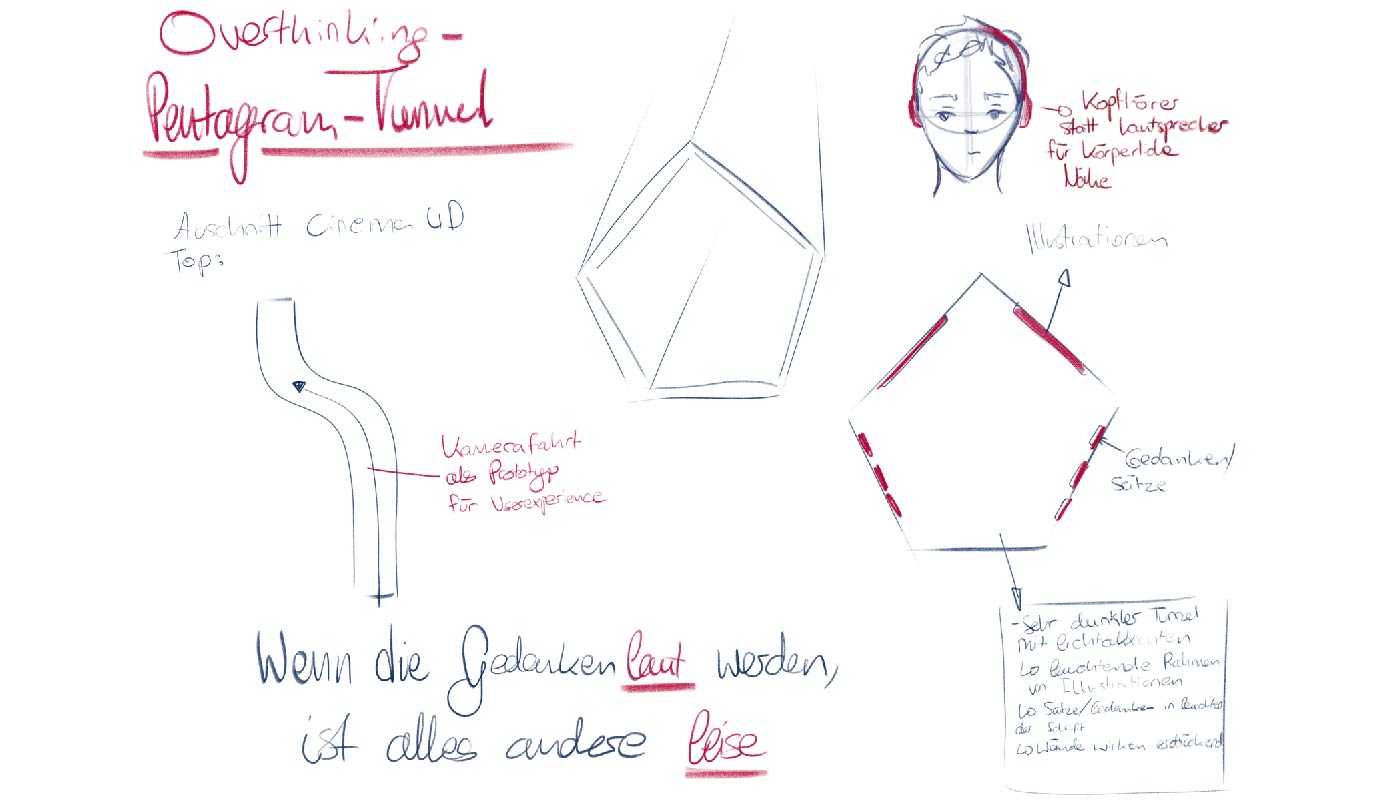 Overthinking-
Pentagram-Tunnel
Auschnitt Cinema 4D
Top:
Kopfhörer
statt Lautsprecher
für körperliche
Nähe
Illustrationen
Kamerafahrt
als Prototyp
für Userexperience
Gedanken/
Sätze
Wenn die Gedanken laut werden,
ist alles andere leise
-Sehr dunkler Tunnel
mit Lichtakzenten
↳ leuchtende Rahmen
um Illustrationen
↳ Sätze/Gedanken in leuchten
der Schrift
↳ Wände wirken erdrückend